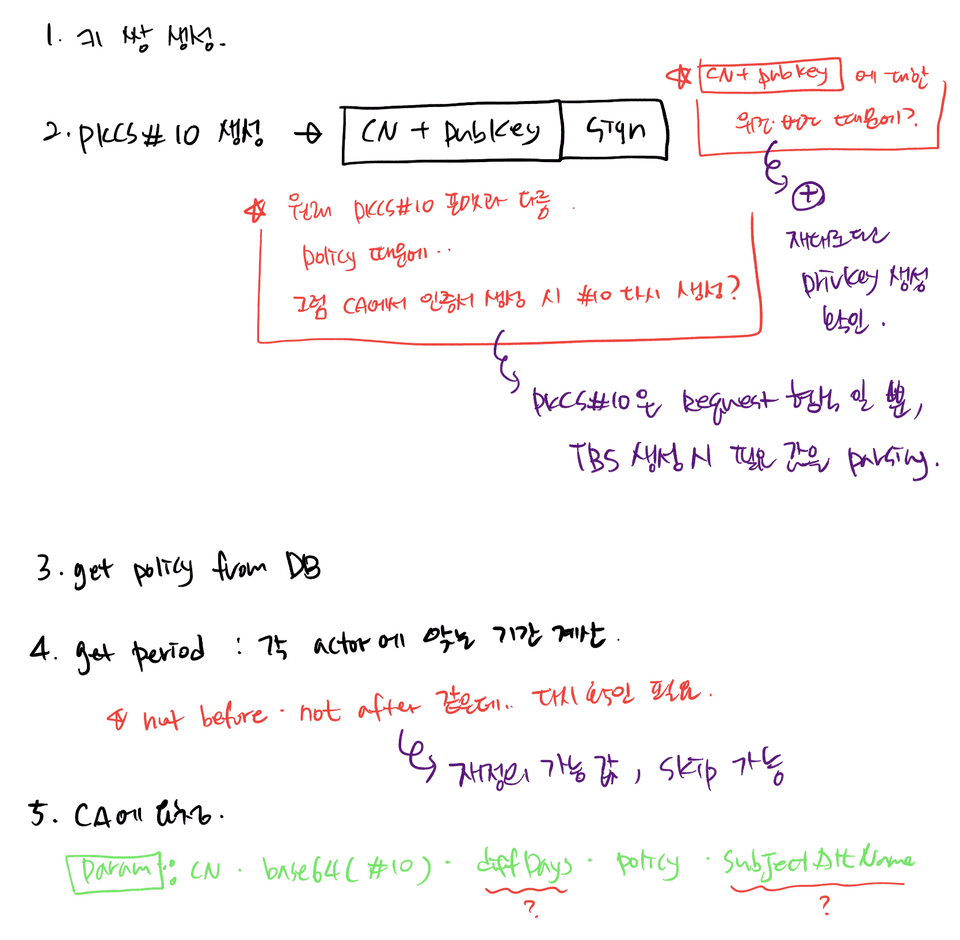 1. 키 쌍 생성.
2. PKCS#10 생성 → CN + pubkey Sign
☆ CN + pubkey 에 대한
위변조 때문에?
⊕
재대로 된
privkey 생성
확인.
☆ 원래 PKCS#10 포맷과 다름.
policy 때문에..
그럼 CA에서 인증서 생성 시 #10 다시 생성?
PKCS#10은 Request 형식일 뿐,
TBS 생성 시 필요 값을 parsing.
3. get policy from DB
4. get period : 각 actor에 맞는 기간 계산.
☆ not before · not after 같은데.. 다시 확인 필요.
재정의 가능 값, skip 가능
5. CA에 요청.
Param : CN · base64(#10) · diffDays · policy · SubjectAltName
? ?